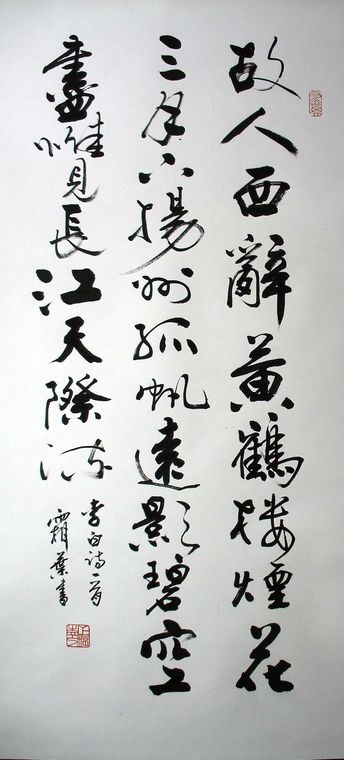 故人西辭黄鶴樓煙花
三月下揚州孤帆遠影碧空
盡惟見長江天際流
李白诗一首
霜葉書